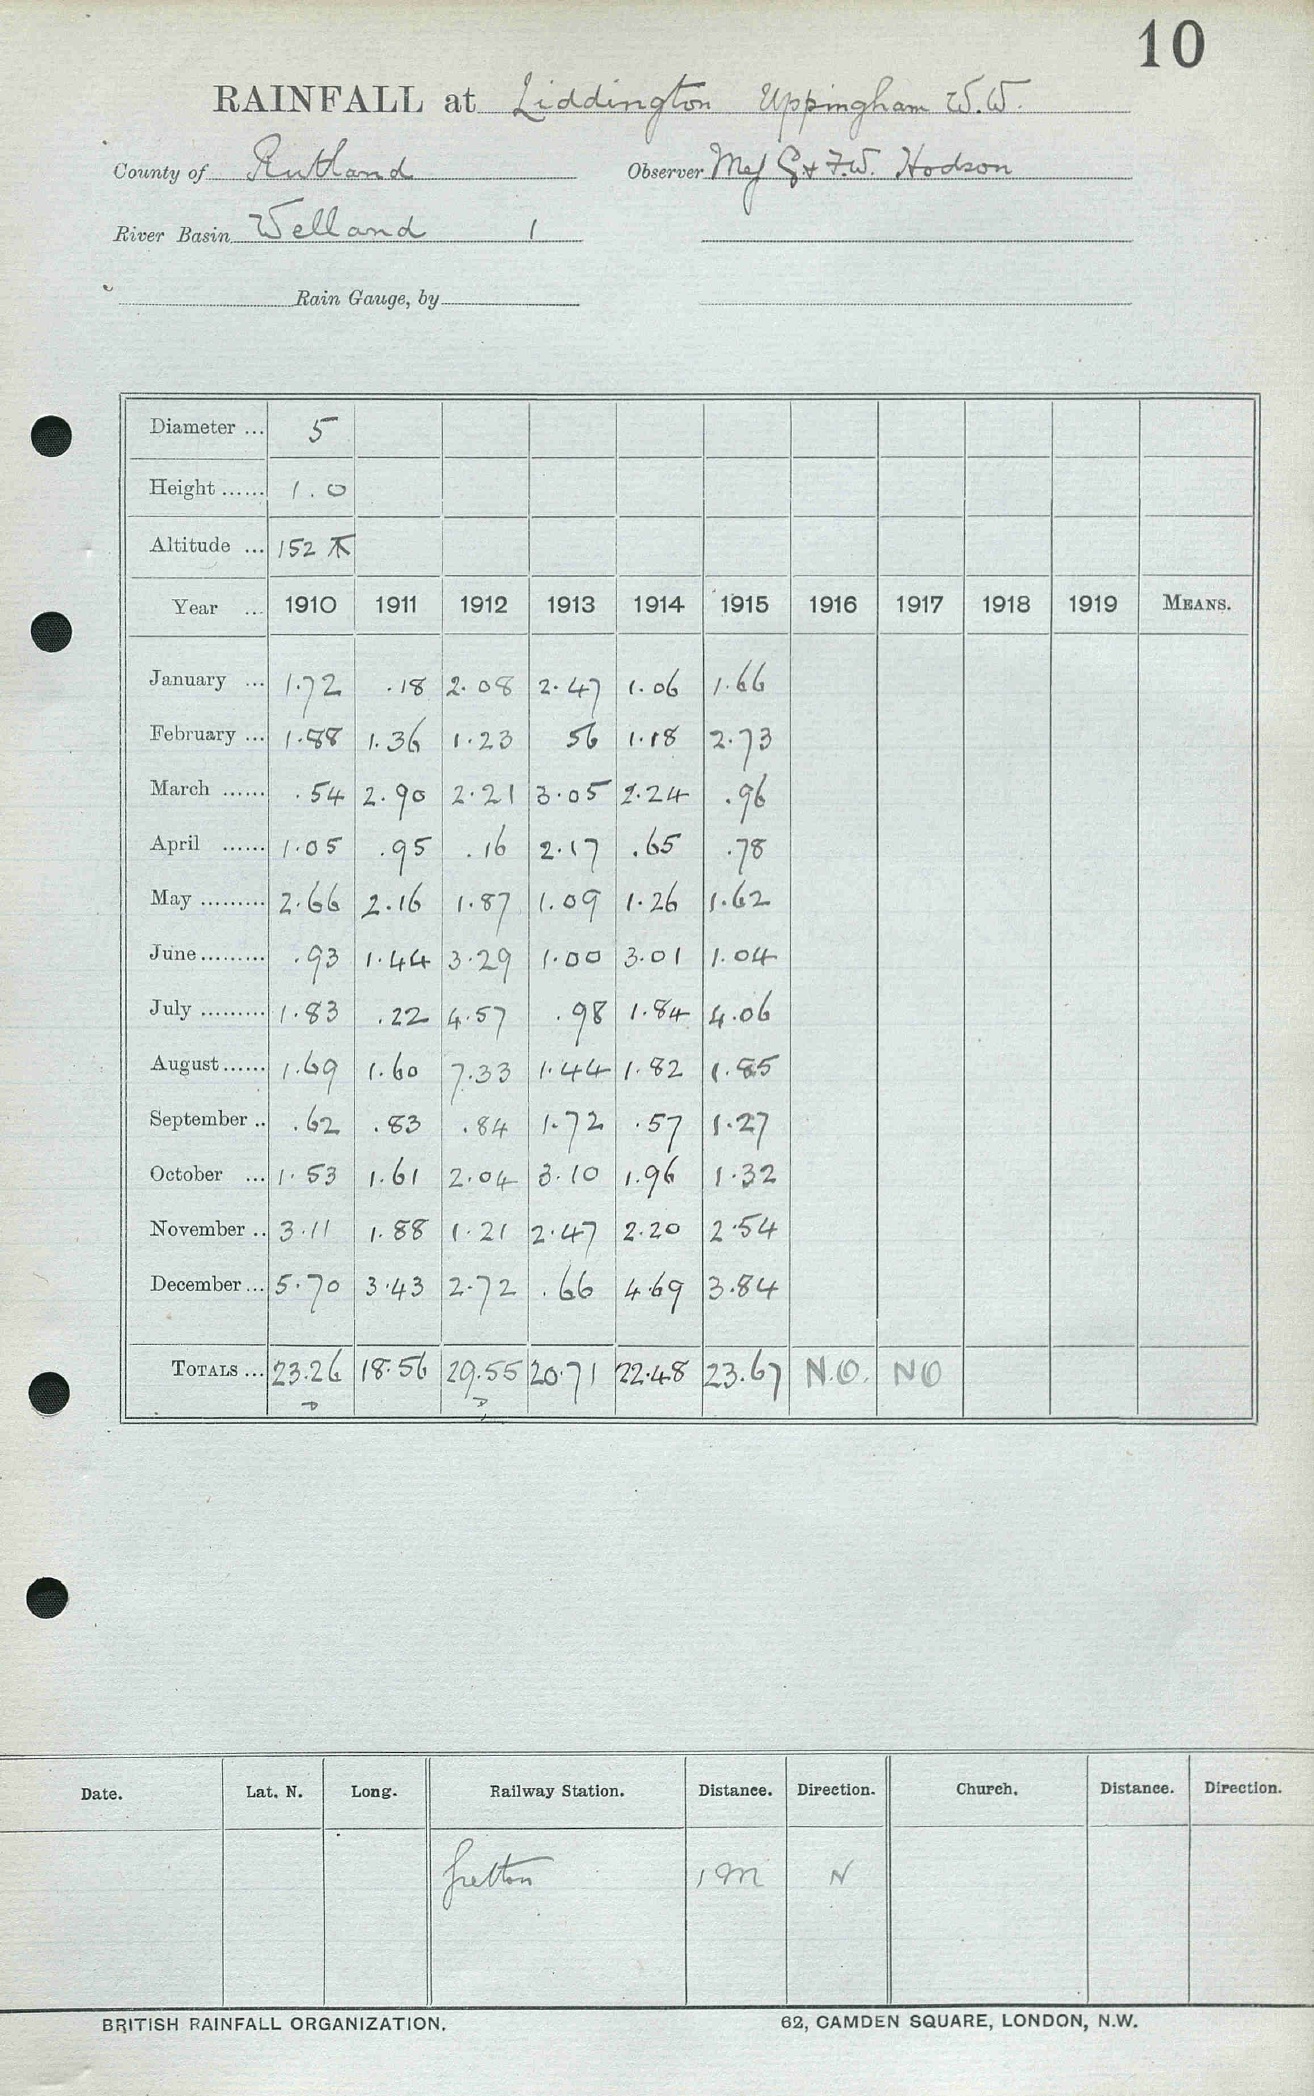 10
RAINFALL at Liddington Uppingham W.W.
County of Rutland Observer Mes G & F.W. Hodson
River Basin Welland 1
Rain Gauge, by
Diameter ... 5
Height ...... 1.0
Altitude ... 152
Year ... 1910 1911 1912 1913 1914 1915 1916 1917 1918 1919 MEANS.
January ... 1.72 .18 2.08 2.47 1.06 1.66
February ... 1.88 1.36 1.23 56 1.18 2.73
March ...... .54 2.90 2.21 3.05 2.24 .96
April ...... 1.05 .95 .16 2.17 .65 .78
May ......... 2.66 2.16 1.87 1.09 1.26 1.62
June ......... .93 1.44 3.29 1.00 3.01 1.04
July ......... 1.83 .22 4.57 .98 1.84 4.06
August ...... 1.69 1.60 7.33 1.44 1.82 1.85
September .. .62 .83 .84 1.72 .57 1.27
October ... 1.53 1.61 2.04 3.10 1.96 1.32
November .. 3.11 1.88 1.21 2.47 2.20 2.54
December ... 5.70 3.43 2.72 .66 4.69 3.84
TOTALS ... 23.26 18.56 29.55 20.71 22.48 23.67 N.O. NO
Date. Lat. N. Long. Railway Station. Distance. Direction. Church. Distance. Direction.
Gretton 1 M N
BRITISH RAINFALL ORGANIZATION. 62, CAMDEN SQUARE, LONDON, N.W.